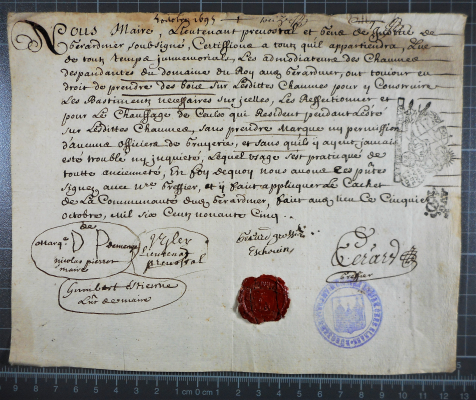 5 octobre 1695
Nous Maire, Lieutenant prevostal et Gens de Justice de
Gérardmer soubsignez, Certiffions a tous quil appartiendra, que
de tout temps jmmemorial, Les admodiateurs des Chaumes
dependantes du domaine du Roy aud Gérardmer, ont toujour eu
droit de prendre des bois Sur Lesdittes Chaumes pour y Construire
Les Bastiments necessaires sur jcelles, Les Reffectionner et
pour Le Chauffage de Ceulx qui Resident pendant Lesté
sur Lesdittes Chaumes, sans prendre Marque ny permission
d'aucuns officiers de Gruyerie, et sans quils y ayent jamais
esté troublé ny jnquieté, Lequel usage sest pratiqué de
toutte ancienneté, En foy dequoy nous avons Ces
signez avec Greffier, et y fait appliquer Le Cachet
de La Communauté dud Gérardmer, fait aud lieu Ce Cinquie
octobre, Mil six Cent nonante Cinq
Marq. de
D P Demenge
nicolas pierrot
maire
Lieutenat
prevostal
Eschevin
Gerard
Greffier
Gombert Etienne
de maire